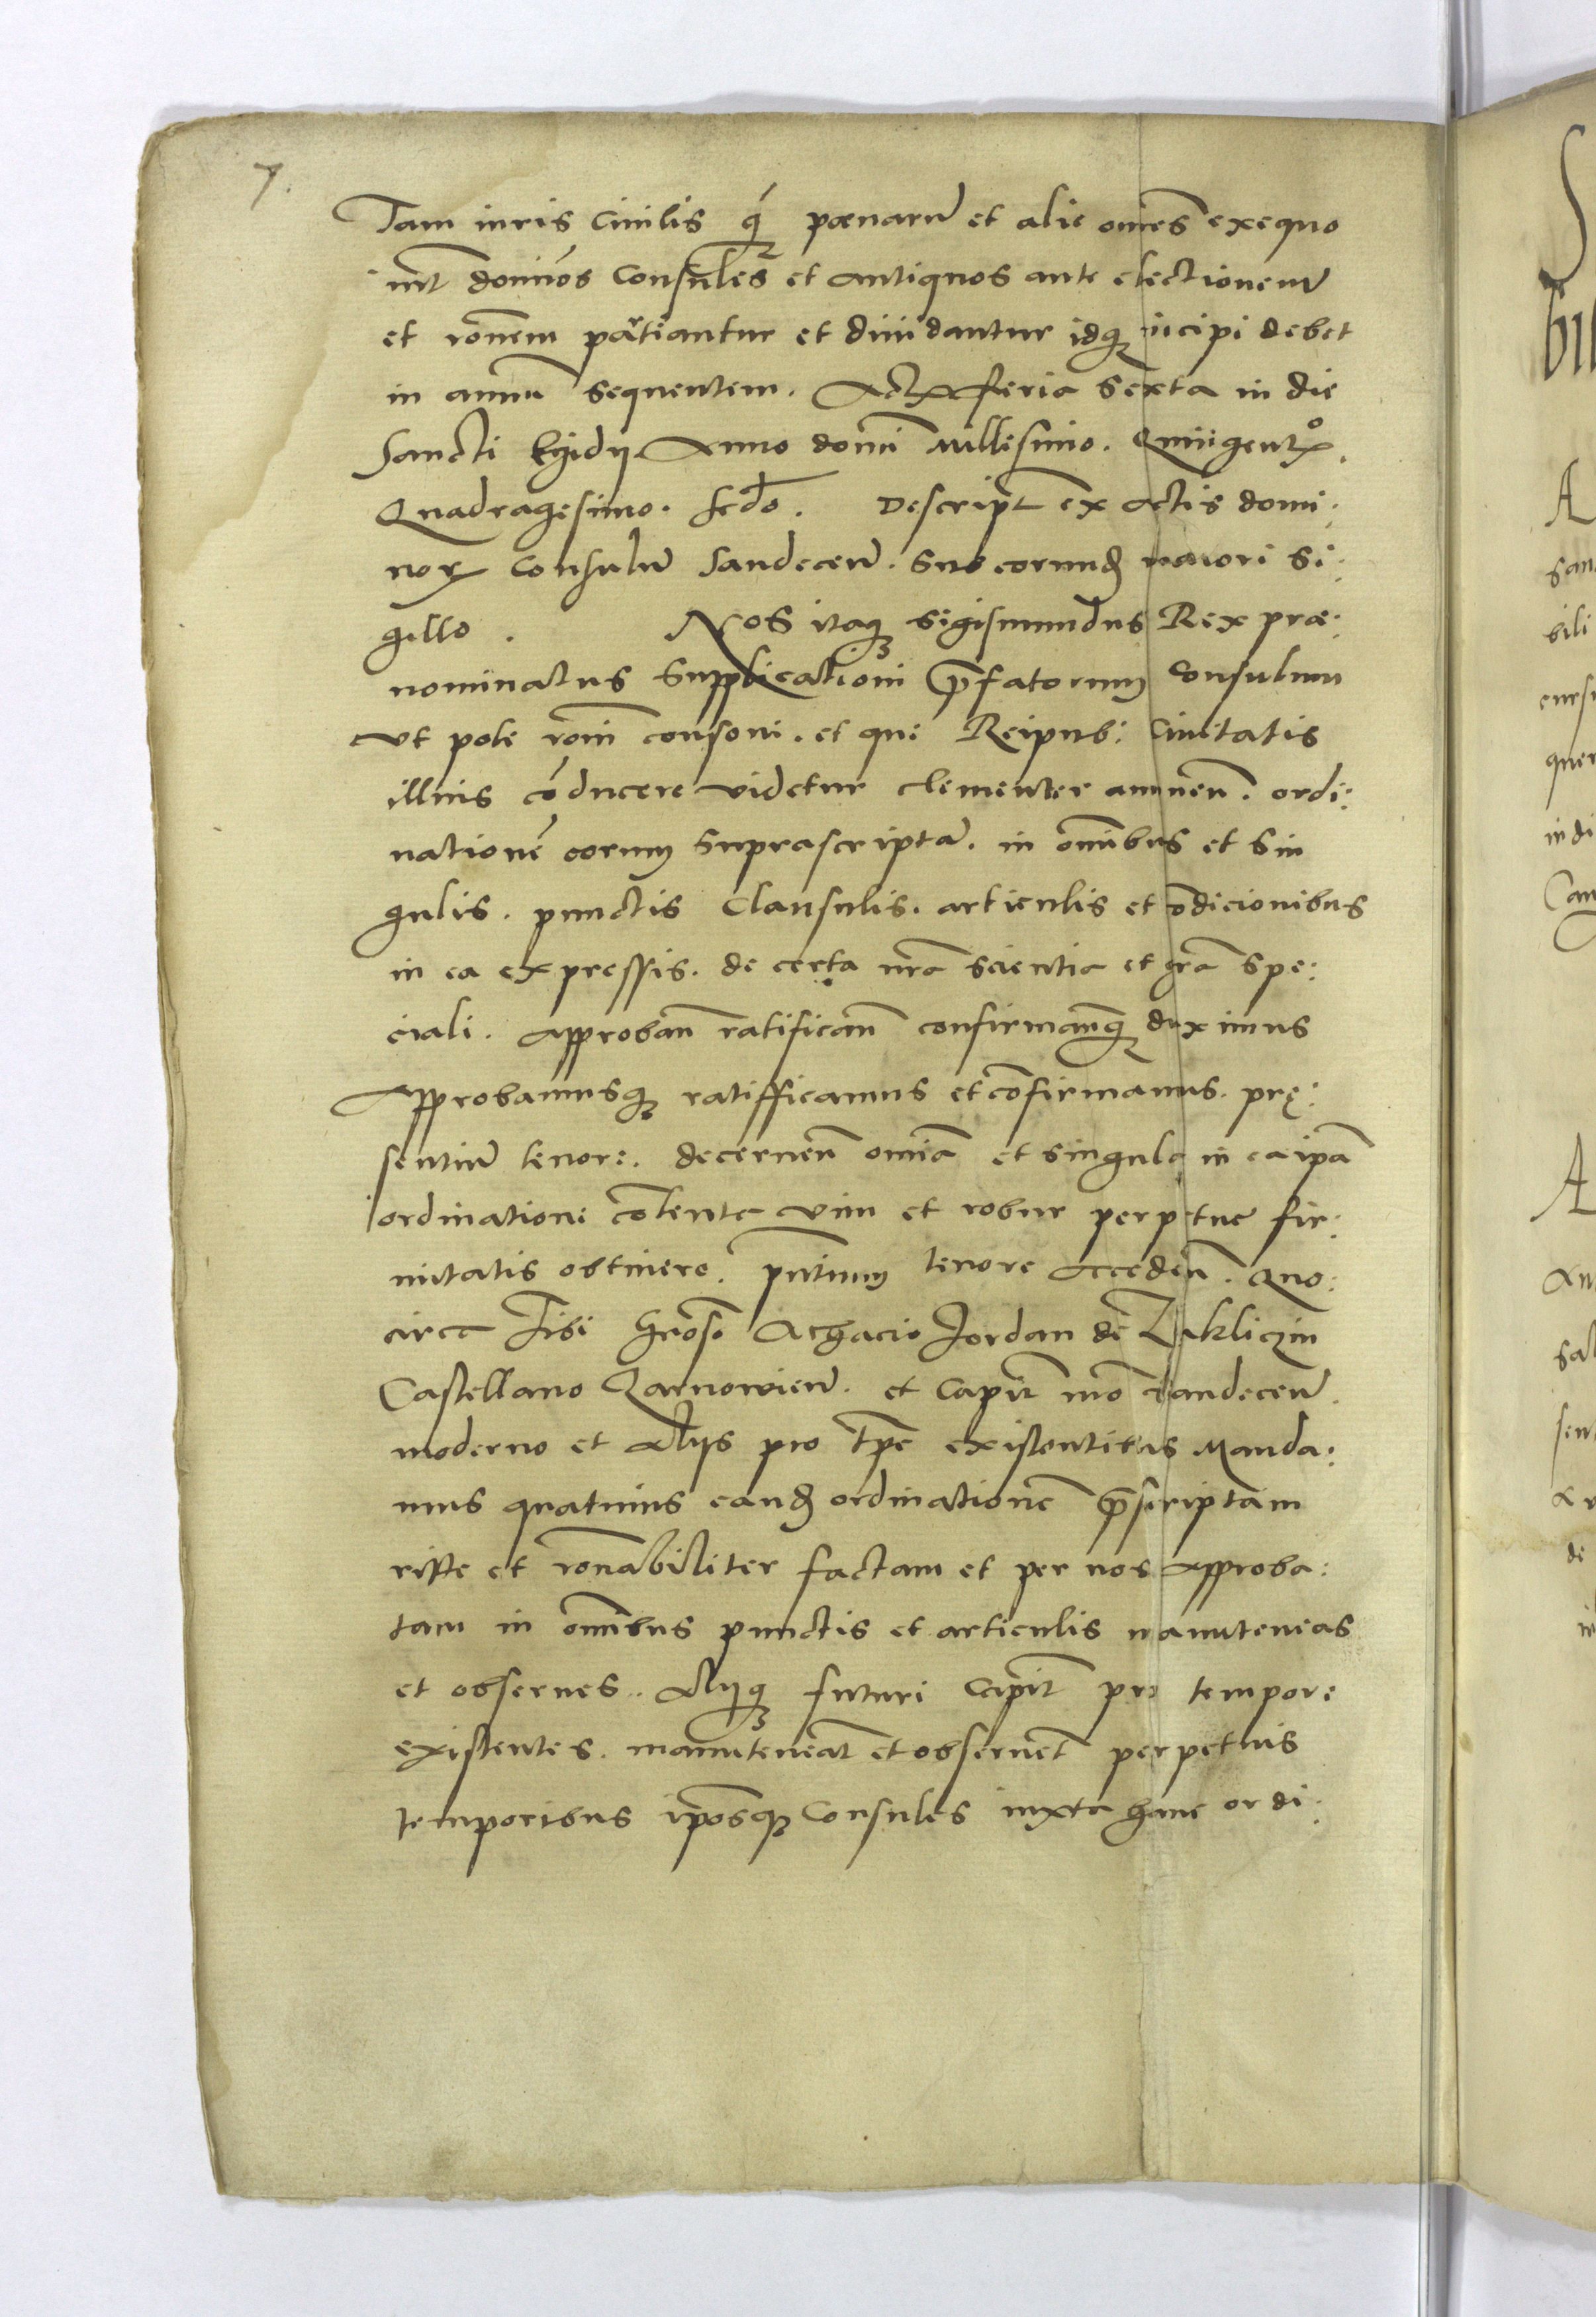 7.
Tam iuris Ciuilis q̃ pœnarũ et alie om̃es exequo
int̃ domĩos Consules et antiquos ante electionem
et rõnem partiantur et diuidantur idq̃ incipi debet
in annũ sequentem. Act Feria Sexta in die
Sancti Egidij Anno domĩ Millesimo. Quingentͦ.
Quadragesimo. scdo. Descript ex Actis domi:
norꝝ Consulũ Sandecen̄. Sub eorundẽ maiori Si:
gillo. Nos itaq̃ Sigismundus Rex præ:
nominatus Supplicationi p̄fatorum Consulum
vt pote rõni consoni. et que Reipub: Ciuitatis
illius cõducere videtur clementer annuen̄. ordi:
nationẽ eorum Suprascriptã. in om̄ibus et Sin
gulis. punctis Clausulis. articulis et cõdicionibus
in ea expressis. de certa nr̃a scientia et grã Spe:
ciali. Approban̄ ratifican̄ confirmanq̃ duximus
Approbamusq̃ ratifficamus et cõfirmamus. prę:
sentium tenore. decernen̄ om̃ia et singula in ea ip̃a
ordinatione cõtenta vim et robur perpetue fir:
mitatis obtinere. pñtium tenore acceden̄. Quo:
circa Tibi Grõso Achacio Jordan de Zakliczin
Castellano Zarnowien̄. et Capit nr̃o Sandecen̄.
moderno et Alijs pro tp̃e existentibus Manda:
mus quatinus eandẽ ordinationẽ p̄scriptam
ritte et rõnabiliter factam et per nos approba:
tam in om̃ibus punctis et articulis manuteneas
et obserues. Alijq̃ futuri Capit̃ pro tempore
existentes. manuteneãt et obseruẽt perpetuis
temporibus ip̃osq̃ Consules iuxta hanc ordi: